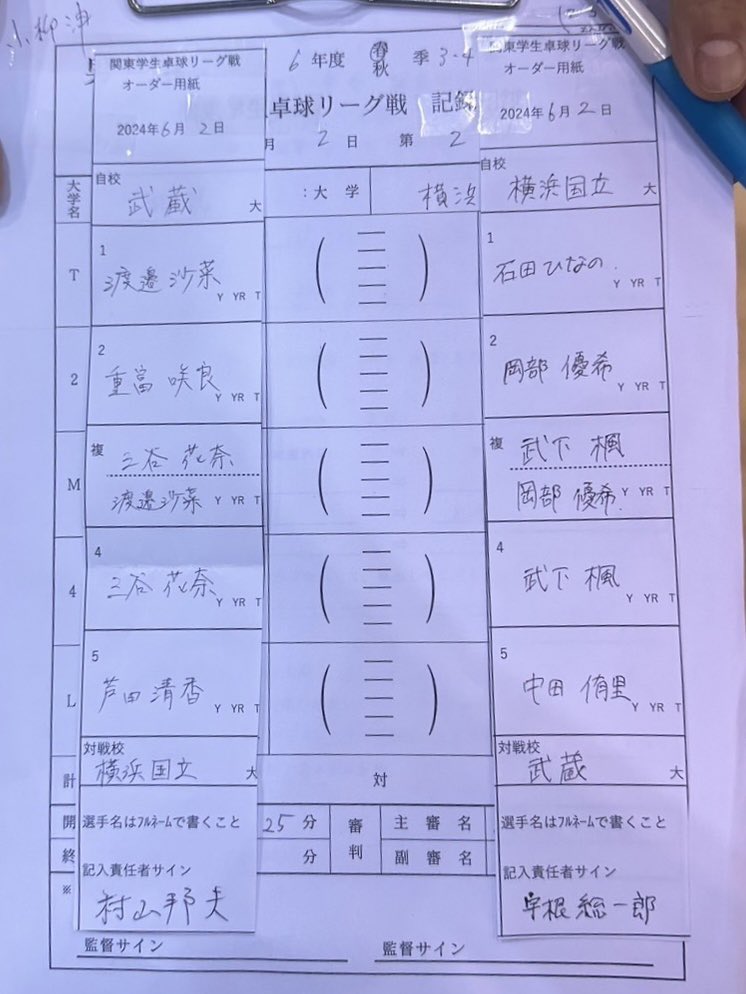 小柳津
関東学生卓球リーグ戦
オーダー用紙
2024年6月2日
6年度 春 秋 季 3・4
卓球リーグ戦 記録
月 2日 第 2
関東学生卓球リーグ戦
オーダー用紙
2024年6月2日
大学名
自校
武蔵 大
:大学 横浜
自校
横浜国立 大
T
1
渡邉 沙菜
Y YR T
( )
1
石田ひなの
Y YR T
2
2
重富 咲良
Y YR T
( )
2
岡部 優希
Y YR T
M
複
三谷 花奈
渡邉沙菜 Y YR T
( )
複
武下 楓
岡部 優希 Y YR T
4
4
三谷 花奈
Y YR T
( )
4
武下 楓
Y YR T
L
5
芦田 清香
Y YR T
( )
5
中田 侑里
Y YR T
計
対戦校
横浜国立 大
対
対戦校
武蔵 大
開
選手名はフルネームで書くこと
25分
審判
主審名
選手名はフルネームで書くこと
終
分
副審名
※
記入責任者サイン
村山邦夫
記入責任者サイン
総一郎
監督サイン
監督サイン